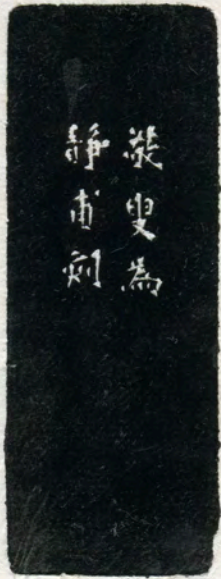 裝叟為
靜甫刻